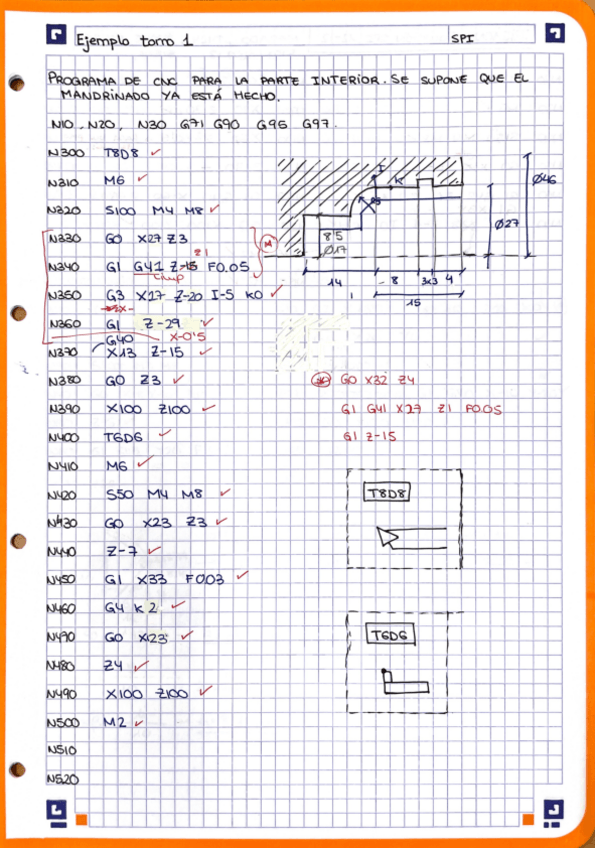 Ejemplo torno 1
SPI
PROGRAMA DE CNC PARA LA PARTE INTERIOR. SE SUPONE QUE EL
MANDRINADO YA ESTÁ HECHO.
N10, N20, N30 G71 G90 G95 G97.
N300 T8D8 ✓
N310 M6 ✓
N320 S100 M4 M8 ✓
N330 G0 X27 Z3
Z1
N340 G1 G41 Z-15 F0.05
N350 G3 X17 Z-20 I-5 K0 ✓
N360 G1 Z-29 ✓
G40 X-0'5
N370 X13 Z-15 ✓
N380 G0 Z3 ✓
N390 X100 Z100 ✓
N400 T6D6 ✓
N410 M6 ✓
N420 S50 M4 M8 ✓
N430 G0 X23 Z3 ✓
N440 Z-7 ✓
N450 G1 X33 F0.03 ✓
N460 G4 K2 ✓
N470 G0 X23 ✓
N480 Z4 ✓
N490 X100 Z100 ✓
N500 M2 ✓
N510
N520
I
K
Ø46
Ø27
8'5
Ø17
14
8
3x3
4
15
G0 X32 Z4
G1 G41 X27 Z1 F0.05
G1 Z-15
T8D8
T6D6